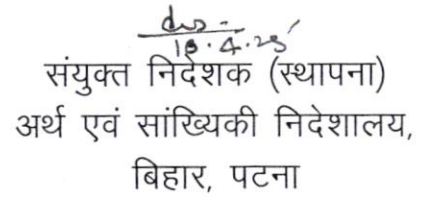 संयुक्त निदेशक (स्थापना)
अर्थ एवं सांख्यिकी निदेशालय,
बिहार, पटना